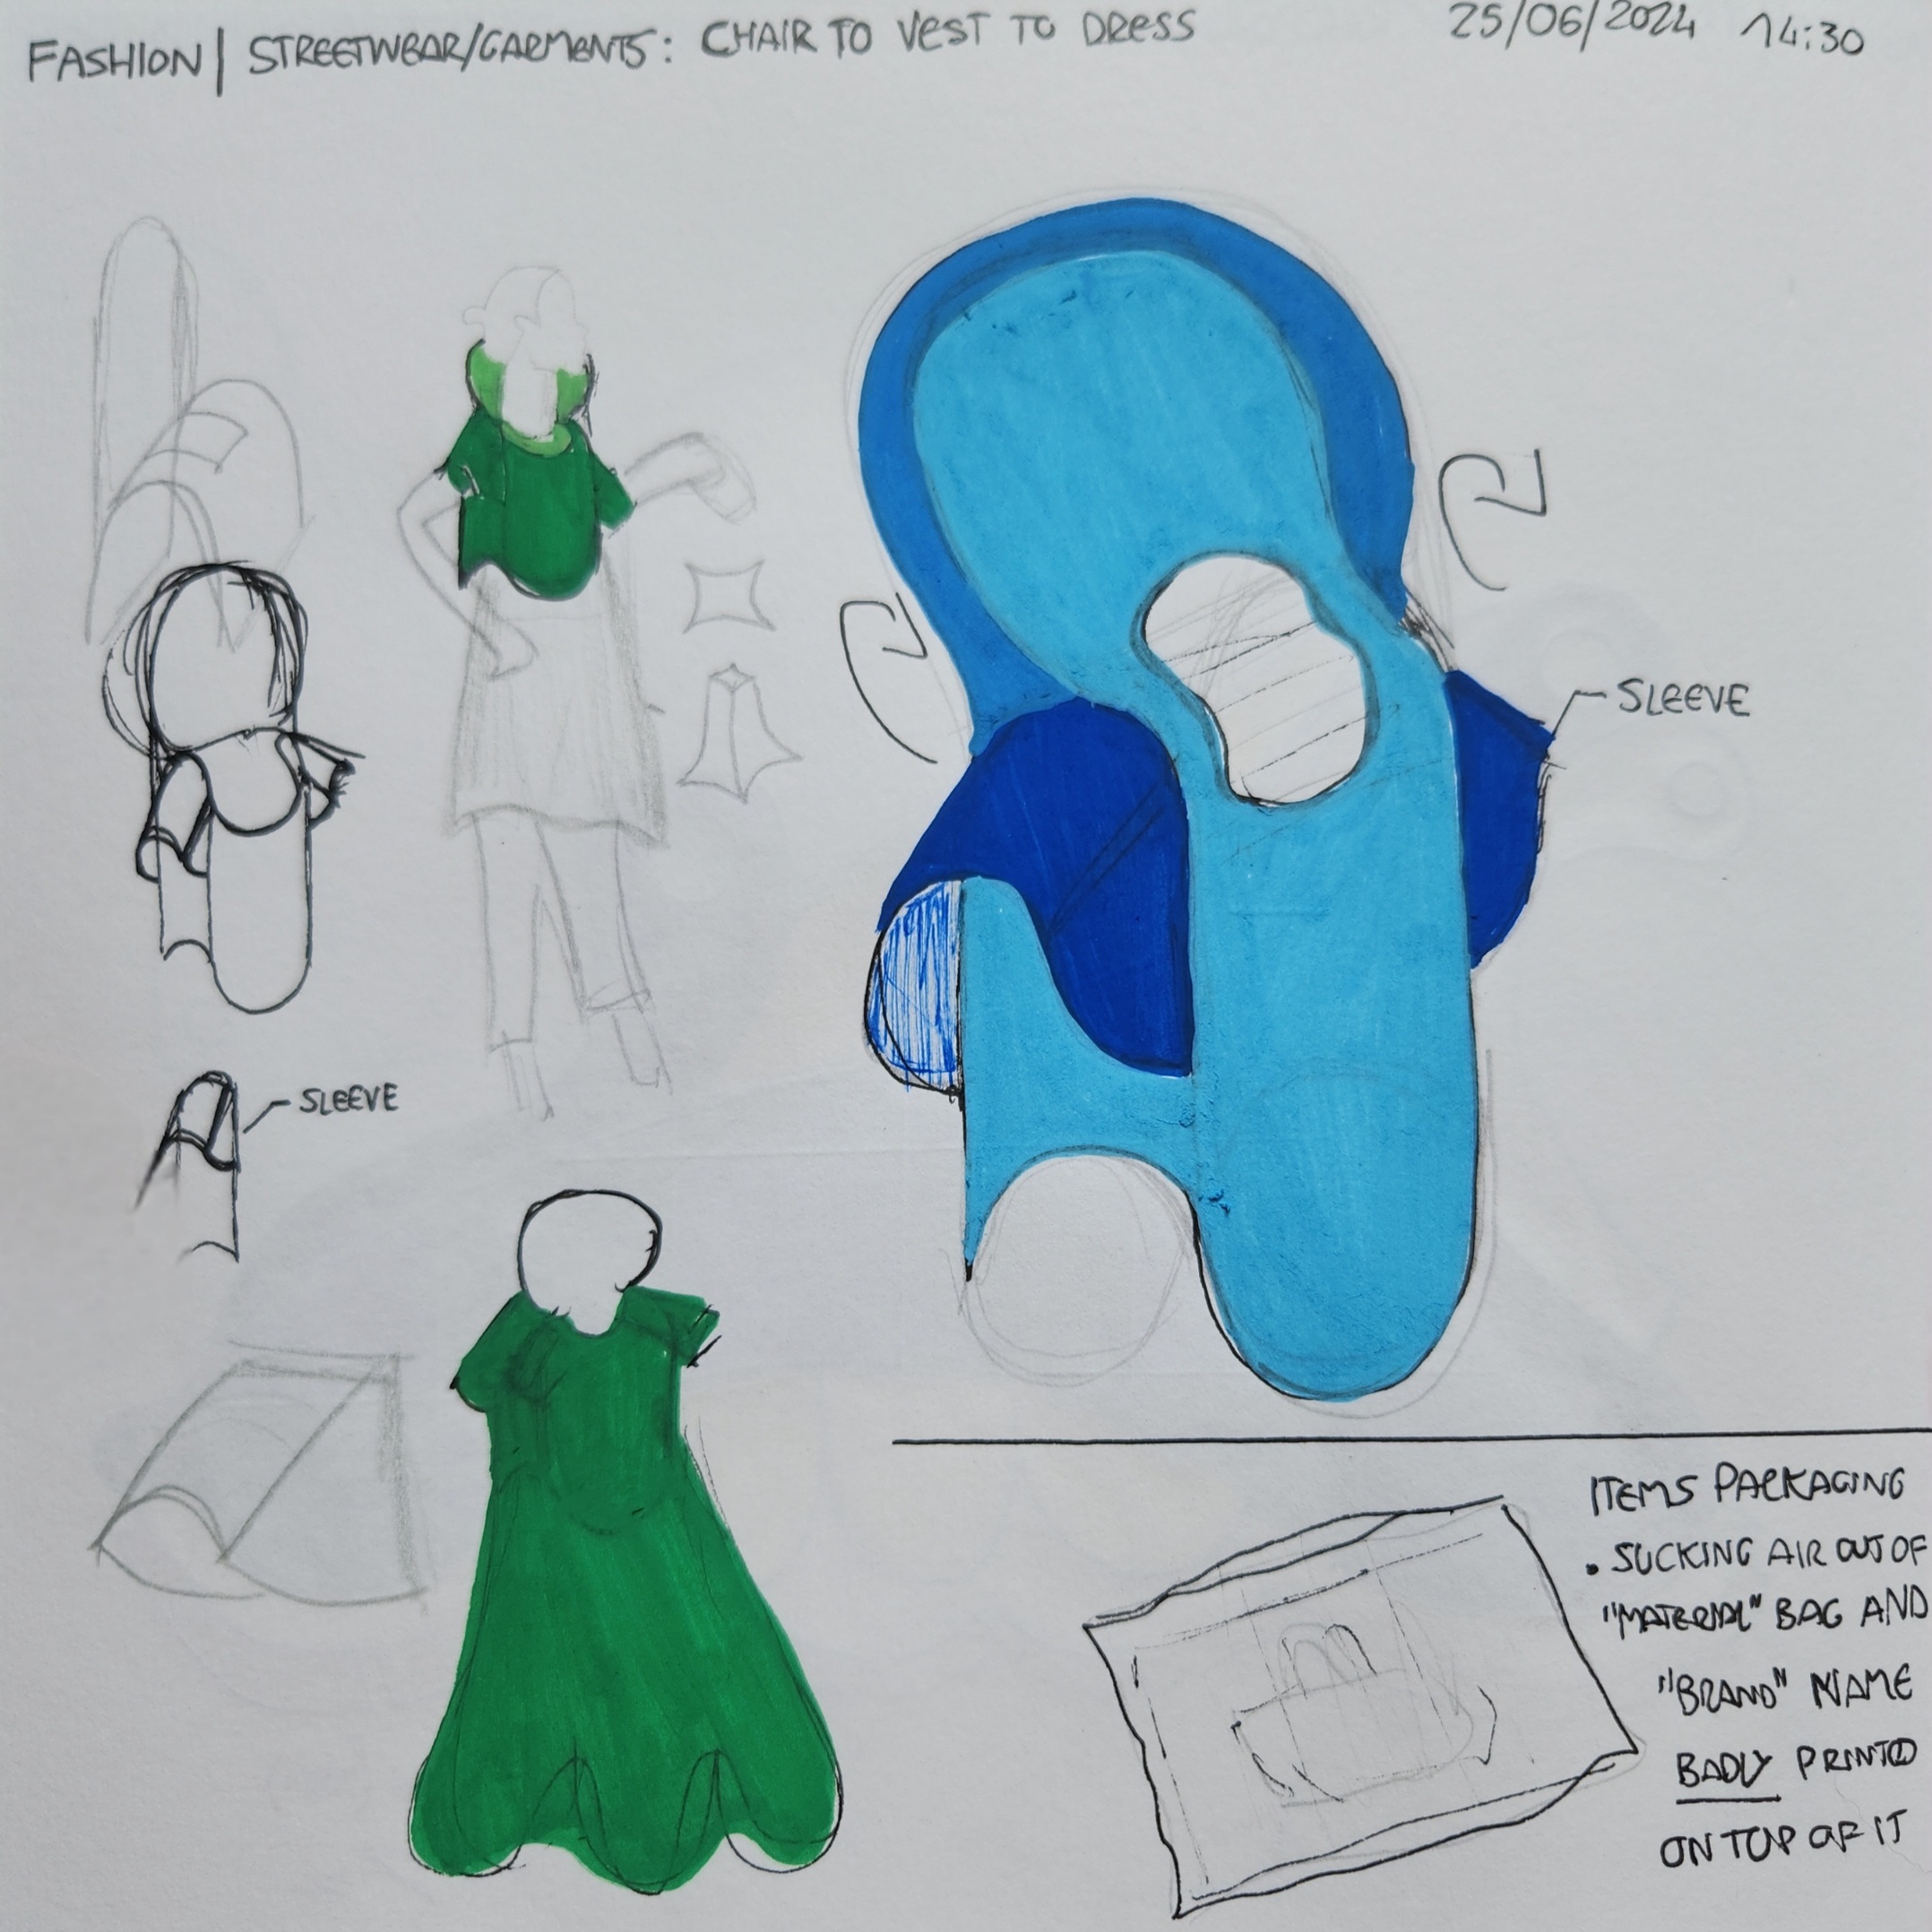 FASHION | STREETWEAR/GARMENTS: CHAIR TO VEST TO DRESS
25/06/2024 14:30
SLEEVE
SLEEVE
ITEMS PACKAGING
• SUCKING AIR OUT OF
"MATERIAL" BAG AND
"BRAND" NAME
BADLY PRINTED
ON TOP OF IT